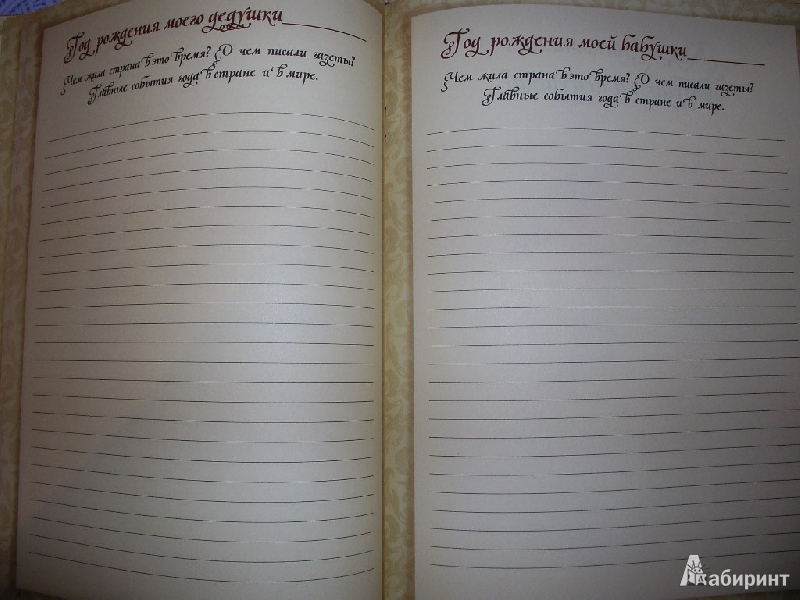 Год рождения моего дедушки
Чем жила страна в это время? О чем писали газеты?
Главные события года в стране и в мире.
Год рождения моей бабушки
Чем жила страна в это время? О чем писали газеты?
Главные события года в стране и в мире.
Лабиринт